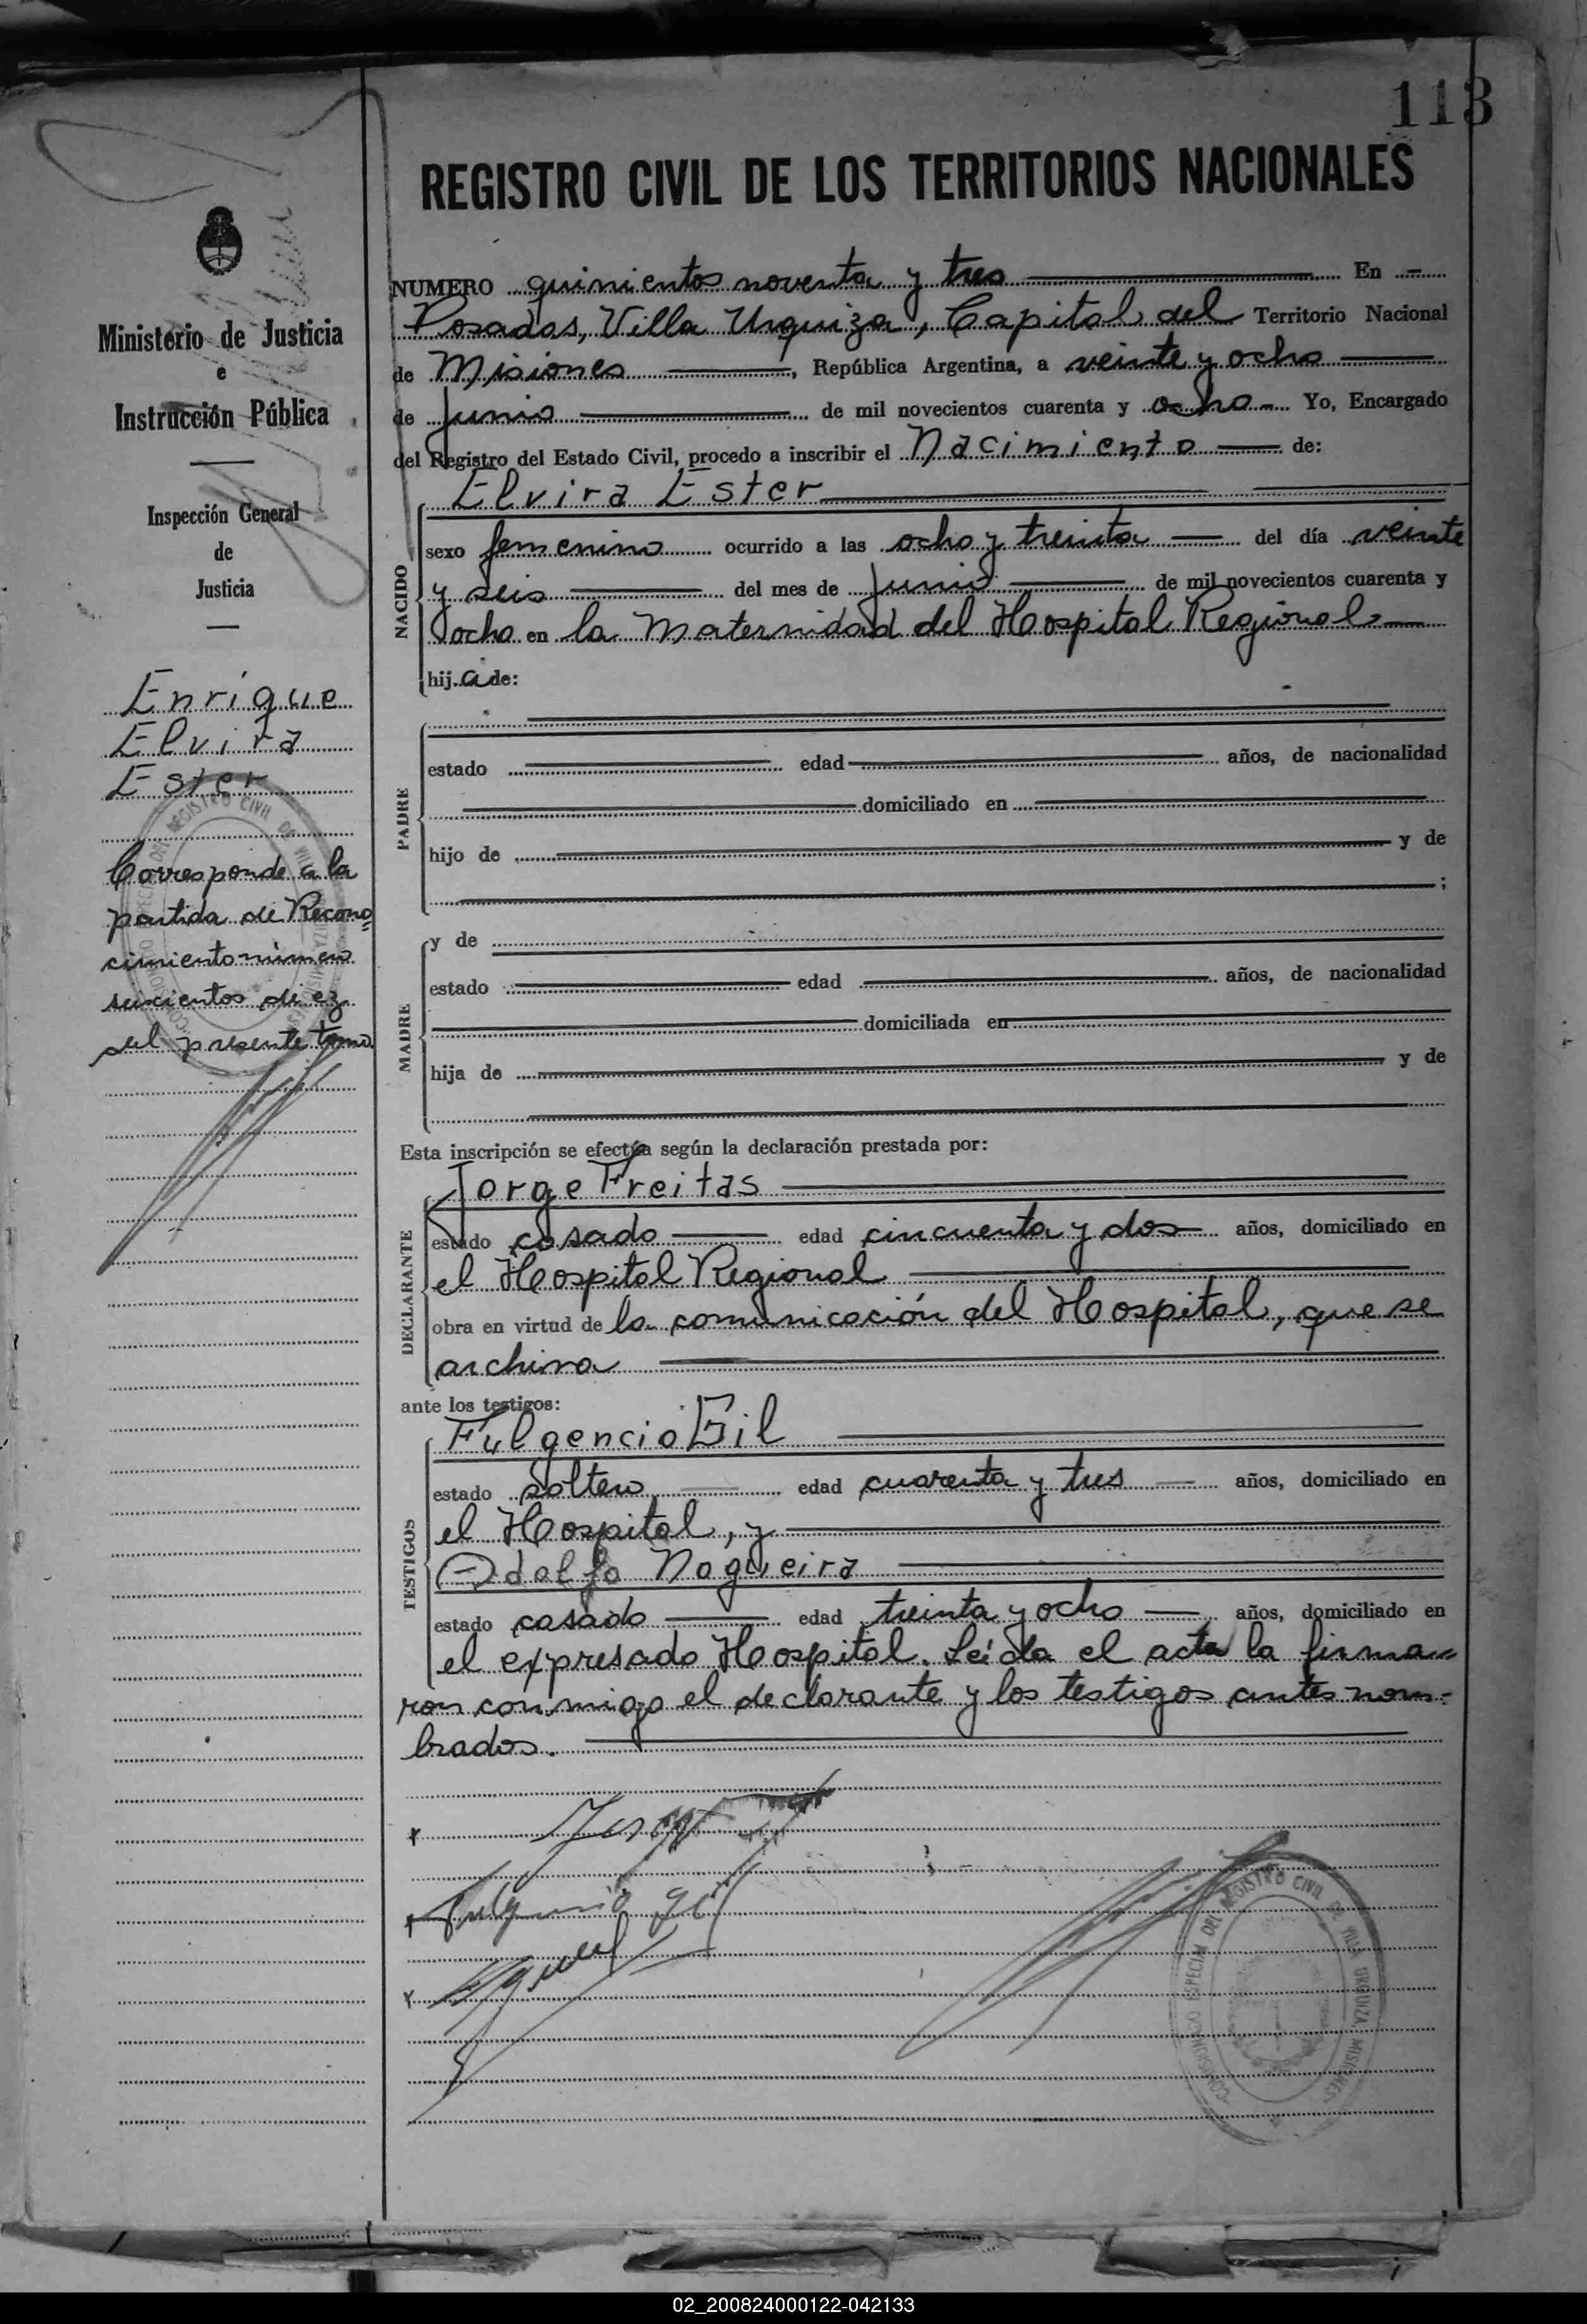 113
REGISTRO CIVIL DE LOS TERRITORIOS NACIONALES
Ministerio de Justicia
e
Instrucción Pública
Inspección General
de
Justicia
Enrique
Elvira
Ester
Corresponde a la
partida de Recono=
cimiento número
seiscientos diez
del presente tomo.
NUMERO quinientos noventa y tres En
Posadas, Villa Urquiza, Capital del Territorio Nacional
de Misiones, República Argentina, a veinte y ocho
de Junio de mil novecientos cuarenta y ocho Yo, Encargado
del Registro del Estado Civil, procedo a inscribir el Nacimiento de:
Elvira Ester
NACIDO
sexo femenino ocurrido a las ocho y treinta del día veinte
y seis del mes de Junio de mil novecientos cuarenta y
ocho en la Maternidad del Hospital Regional
hij a de:
PADRE
estado edad años, de nacionalidad
domiciliado en
hijo de y de
;
MADRE
y de
estado edad años, de nacionalidad
domiciliada en
hija de y de
Esta inscripción se efectúa según la declaración prestada por:
DECLARANTE
Jorge Freitas
estado casado edad cincuenta y dos años, domiciliado en
el Hospital Regional
obra en virtud de la comunicación del Hospital, que se
archiva
ante los testigos:
TESTIGOS
Fulgencio Gil
estado soltero edad cuarenta y tres años, domiciliado en
el Hospital, y
Adolfo Nogueira
estado casado edad treinta y ocho años, domiciliado en
el expresado Hospital. Leída el acta la firma=
ron conmigo el declarante y los testigos antes nom=
brados.
Fulgencio Gil
REGISTRO CIVIL DE VILLA URQUIZA MISIONES
02_200824000122-042133